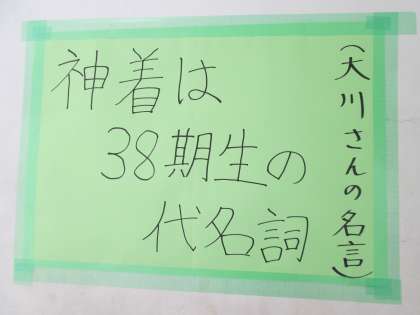 神着は
38期生の
代名詞
(大川さんの名言)